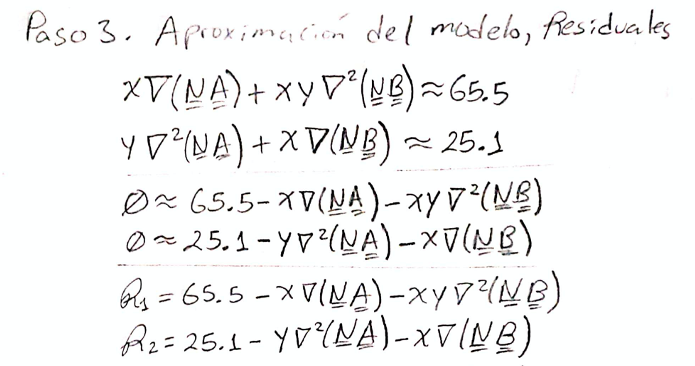 Paso 3. Aproximación del modelo, Residuales
X∇(N̳A̳) + XY∇²(N̳B̳) ≈ 65.5
Y∇²(N̳A̳) + X∇(N̳B̳) ≈ 25.1
0 ≈ 65.5 - X∇(N̳A̳) - XY∇²(N̳B̳)
0 ≈ 25.1 - Y∇²(N̳A̳) - X∇(N̳B̳)
R₁ = 65.5 - X∇(N̳A̳) - XY∇²(N̳B̳)
R₂ = 25.1 - Y∇²(N̳A̳) - X∇(N̳B̳)